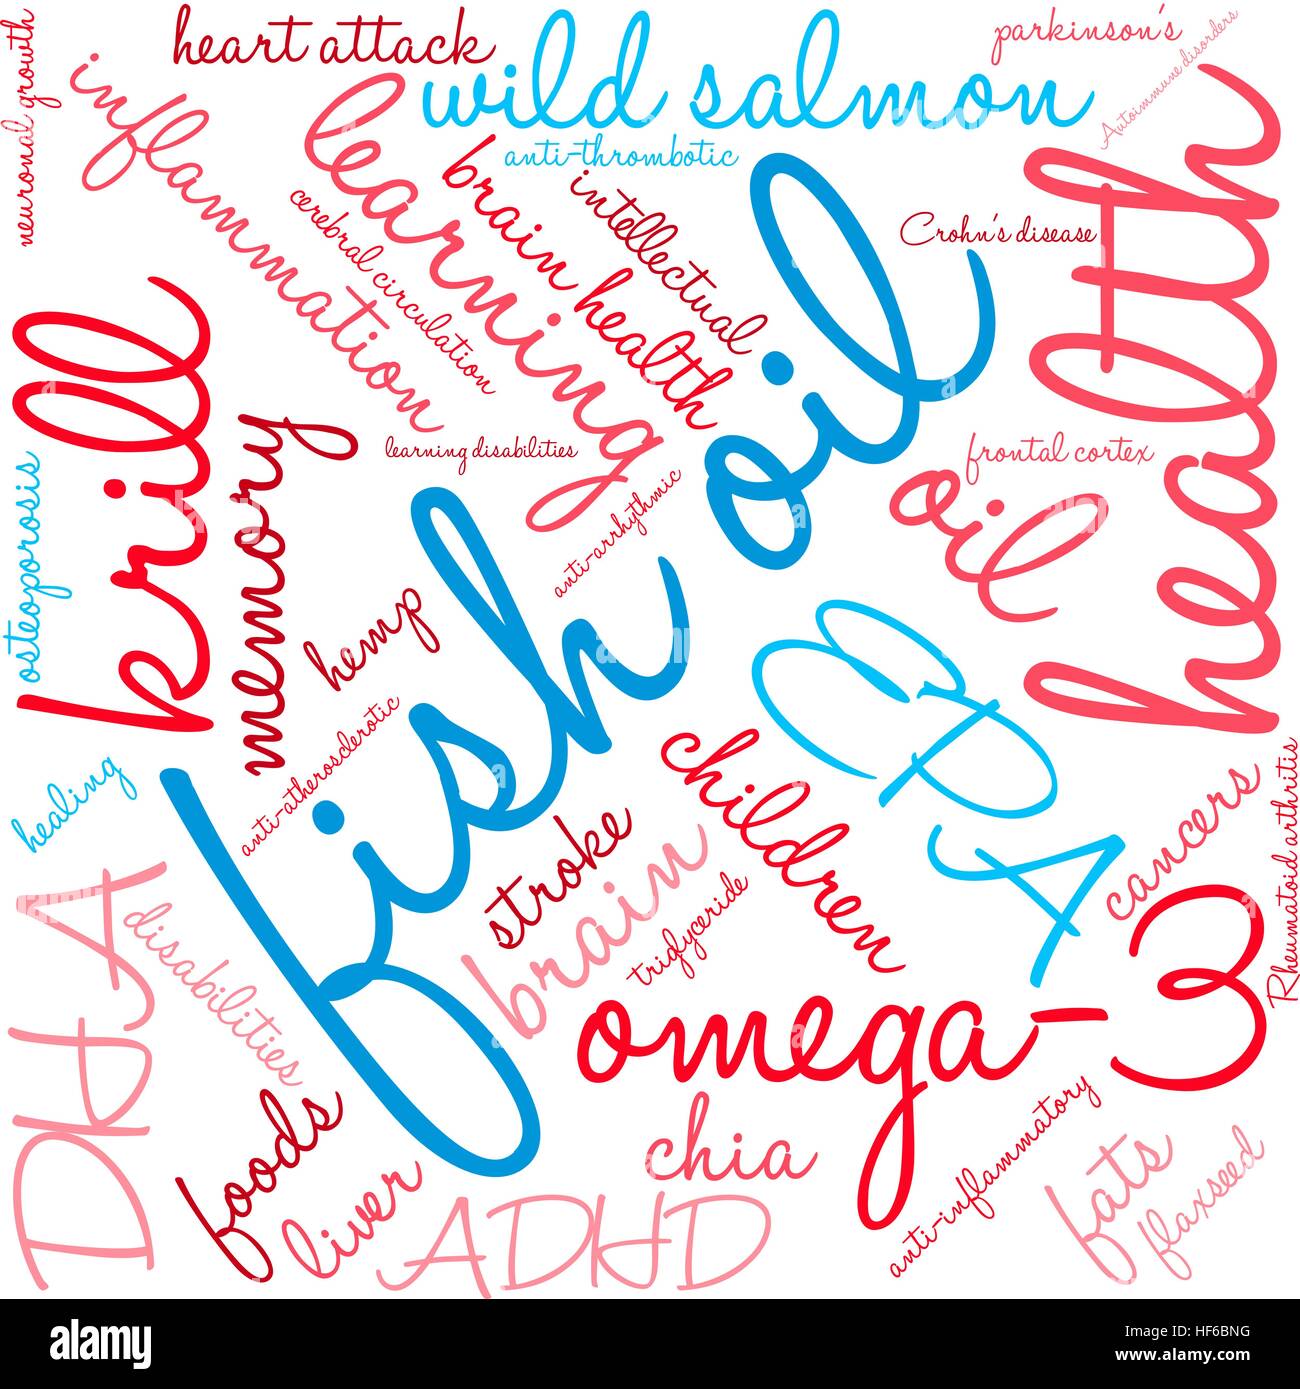 heart attack
parkinson's
neuronal growth
inflammation
learning
wild salmon
Autoimmune disorders
anti-thrombotic
brain health
intellectual
cerebral circulation
Crohn's disease
health
krill
memory
learning disabilities
frontal cortex
oil
osteoporosis
anti-arrhythmic
fish oil
hemp
EPA
anti-atherosclerotic
children
healing
stroke
brain
cancers
Rheumatoid arthritis
triglyceride
DHA
disabilities
omega-3
foods
liver
chia
ADHD
anti-inflammatory
fats
flaxseed
alamy
Image ID: HF6BNG
www.alamy.com